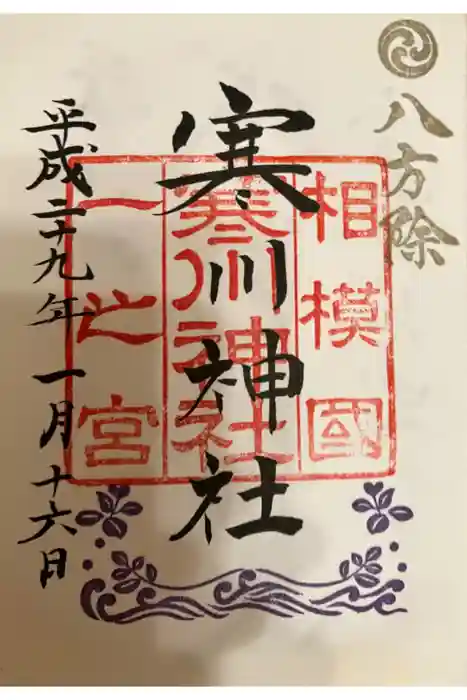 八方除
相模國
寒川神社
一之宮
寒川神社
平成二十九年一月十六日